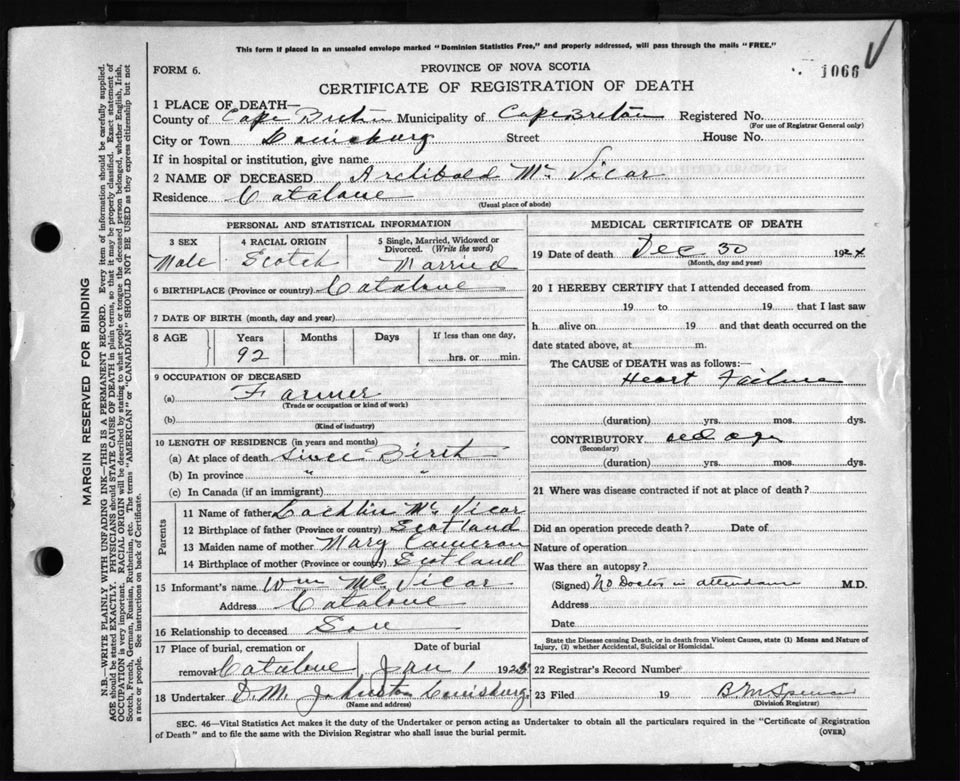 This form if placed in an unsealed envelope marked "Dominion Statistics Free," and properly addressed, will pass through the mails "FREE."
FORM 6.
PROVINCE OF NOVA SCOTIA
1066
CERTIFICATE OF REGISTRATION OF DEATH
1 PLACE OF DEATH—
County of Cape Breton Municipality of Cape Breton Registered No.
(For use of Registrar General only)
City or Town Louisburg Street House No.
If in hospital or institution, give name
2 NAME OF DECEASED Archibald Mc Vicar
Residence Catalone
(Usual place of abode)
PERSONAL AND STATISTICAL INFORMATION
3 SEX 4 RACIAL ORIGIN 5 Single, Married, Widowed or Divorced. (Write the word)
Male Scotch Married
6 BIRTHPLACE (Province or country) Catalone
7 DATE OF BIRTH (month, day and year)
8 AGE Years Months Days If less than one day,
92 hrs. or min.
9 OCCUPATION OF DECEASED
(a) Farmer
(Trade or occupation or kind of work)
(b)
(Kind of industry)
10 LENGTH OF RESIDENCE (in years and months)
(a) At place of death Since Birth
(b) In province " "
(c) In Canada (if an immigrant)
Parents
11 Name of father Lachlin Mc Vicar
12 Birthplace of father (Province or country) Scotland
13 Maiden name of mother Mary Cameron
14 Birthplace of mother (Province or country) Scotland
15 Informant's name Wm Mc Vicar
Address Catalone
16 Relationship to deceased Son
17 Place of burial, cremation or removal Catalone Date of burial Jan 1 1925
18 Undertaker D. M. Johnston Louisburg
(Name and address)
MEDICAL CERTIFICATE OF DEATH
19 Date of death Dec 30 1924
(Month, day and year)
20 I HEREBY CERTIFY that I attended deceased from
19 to 19 that I last saw
h alive on 19 and that death occurred on the
date stated above, at m.
The CAUSE of DEATH was as follows:—
Heart Failure
(duration) yrs. mos. dys.
CONTRIBUTORY old age
(Secondary)
(duration) yrs. mos. dys.
21 Where was disease contracted if not at place of death?
Did an operation precede death? Date of
Nature of operation
Was there an autopsy?
(Signed) No Doctor in attendance M.D.
Address
Date
State the Disease causing Death, or in death from Violent Causes, state (1) Means and Nature of Injury, (2) whether Accidental, Suicidal or Homicidal.
22 Registrar's Record Number
23 Filed 19 Spencer
(Division Registrar)
SEC. 46—Vital Statistics Act makes it the duty of the Undertaker or person acting as Undertaker to obtain all the particulars required in the "Certificate of Registration
of Death" and to file the same with the Division Registrar who shall issue the burial permit.
(OVER)
MARGIN RESERVED FOR BINDING
N.B.—WRITE PLAINLY WITH UNFADING INK—THIS IS A PERMANENT RECORD. Every item of information should be carefully supplied.
AGE should be stated EXACTLY. PHYSICIANS should STATE CAUSE OF DEATH in plain terms, so that it may be properly classified. Exact statement of
OCCUPATION is very important. RACIAL ORIGIN will be described by stating to what people or tongue the deceased person belonged, whether English, Irish,
Scotch, French, German, Russian, Ruthenian, etc. The terms "AMERICAN" or "CANADIAN" SHOULD NOT BE USED as they express citizenship but not
a race or people. See instructions on back of Certificate.